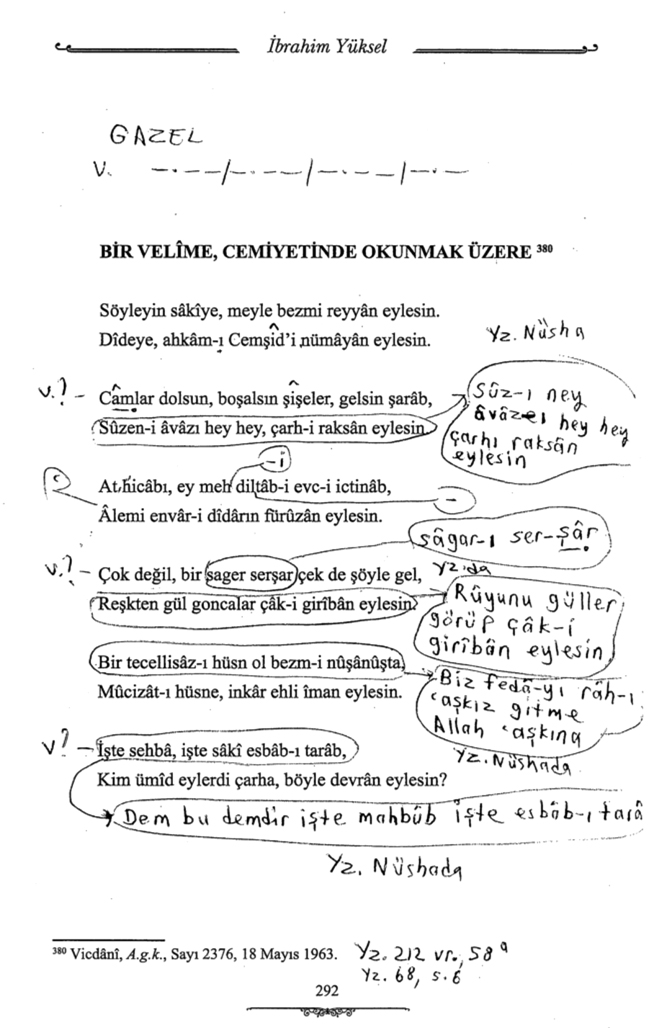 İbrahim Yüksel
GAZEL
V. — . — — / — . — — / — . — — / — . —
BİR VELÎME, CEMİYETİNDE OKUNMAK ÜZERE ³⁸⁰
Söyleyin sâkîye, meyle bezmi reyyân eylesin.
Dîdeye, ahkâm-ı Cemşid'i nümâyân eylesin.
Yz. Nüsha
v.? – Câmlar dolsun, boşalsın şişeler, gelsin şarâb,
Sûzen-i âvâzı hey hey, çarh-i raksân eylesin
Sûz-ı ney
âvâzei hey hey
çarhı raksân
eylesin
-i
At hicâbı, ey meh diltâb-i evc-i ictinâb,
Âlemi envâr-i dîdârın fürûzân eylesin.
sâgar-ı ser-şâr
v.? – Çok değil, bir sager serşar çek de şöyle gel,
Yz.da
Reşkten gül goncalar çâk-i girîbân eylesin
Rûyunu güller
görüp çâk-i
girîbân eylesin
Bir tecellisâz-ı hüsn ol bezm-i nûşânûşta,
Mûcizât-ı hüsne, inkâr ehli îman eylesin.
Biz fedâ-yı râh-ı
'aşkız gitme
Allah 'aşkına
Yz. Nüshada
v? – İşte sehbâ, işte sâkî esbâb-ı tarâb,
Kim ümîd eylerdi çarha, böyle devrân eylesin?
Dem bu demdir işte mahbûb işte esbâb-ı tara
Yz. Nüshada
³⁸⁰ Vicdânî, A.g.k., Sayı 2376, 18 Mayıs 1963.
Yz. 212 vr., 58ᵃ
Yz. 68, s. 6
292